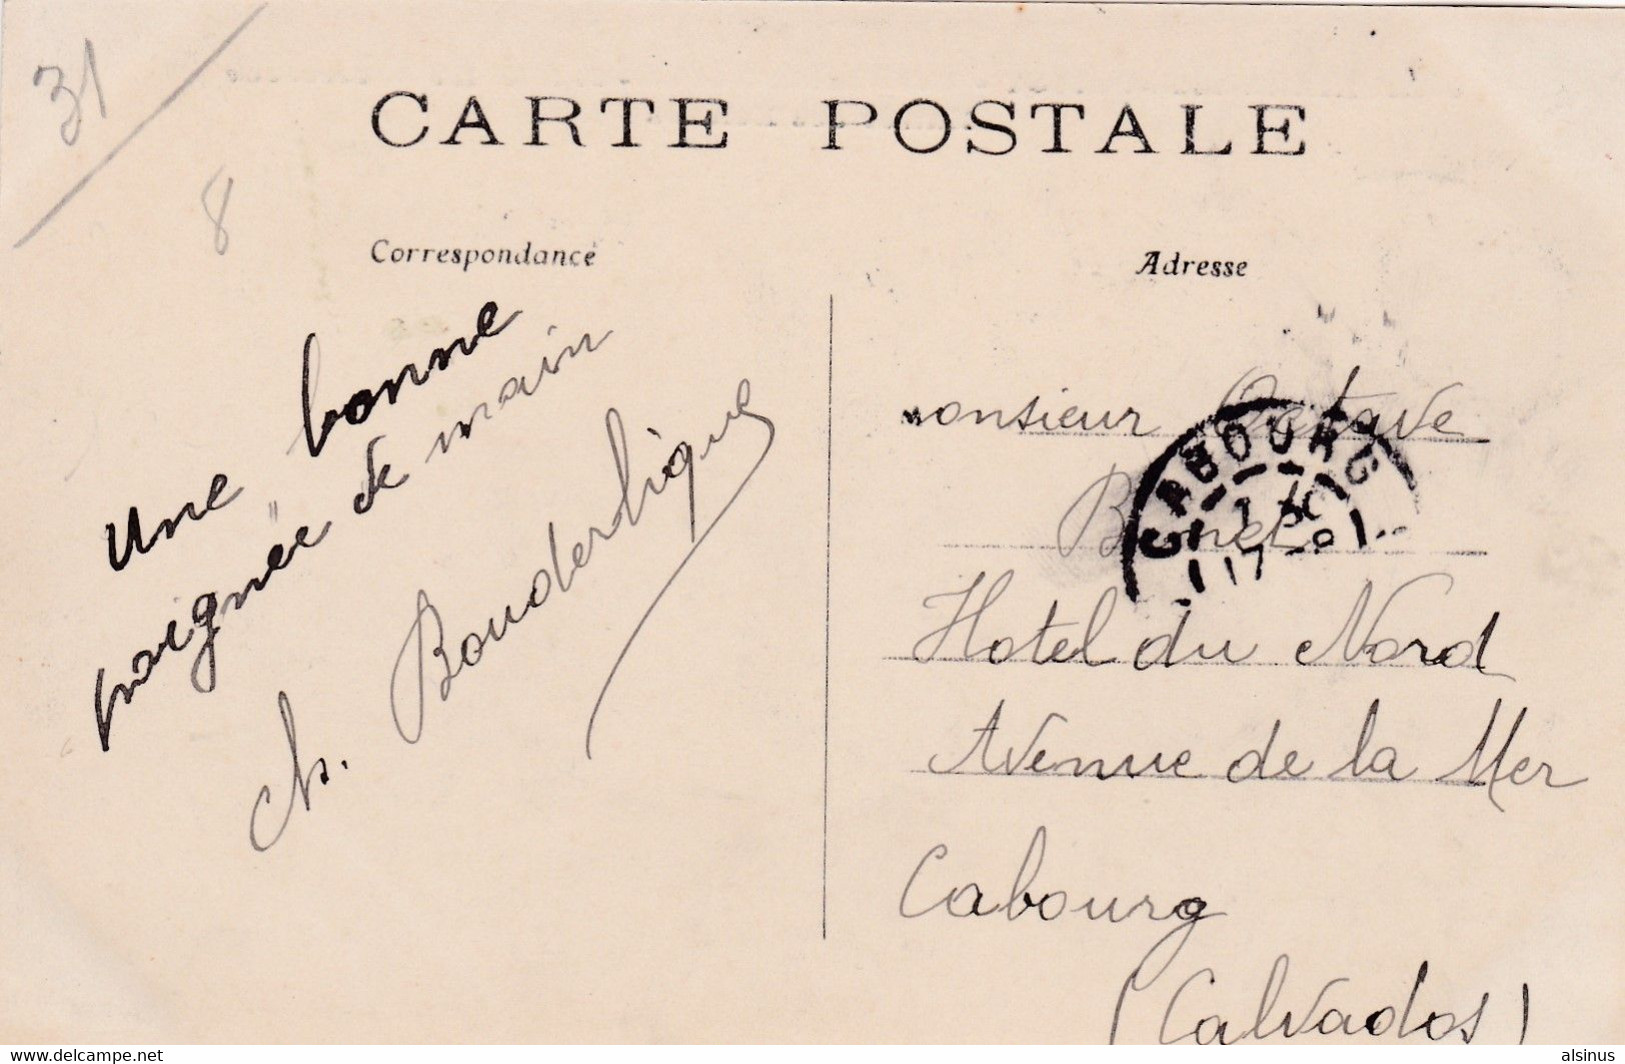 31
8
CARTE POSTALE
Correspondance
Adresse
Une bonne
poignée de main
Ch. Bouderlique
Monsieur Octave
CABOURG
Hotel du Nord
Avenue de la Mer
Cabourg
(Calvados)
delcampe.net
alsinus